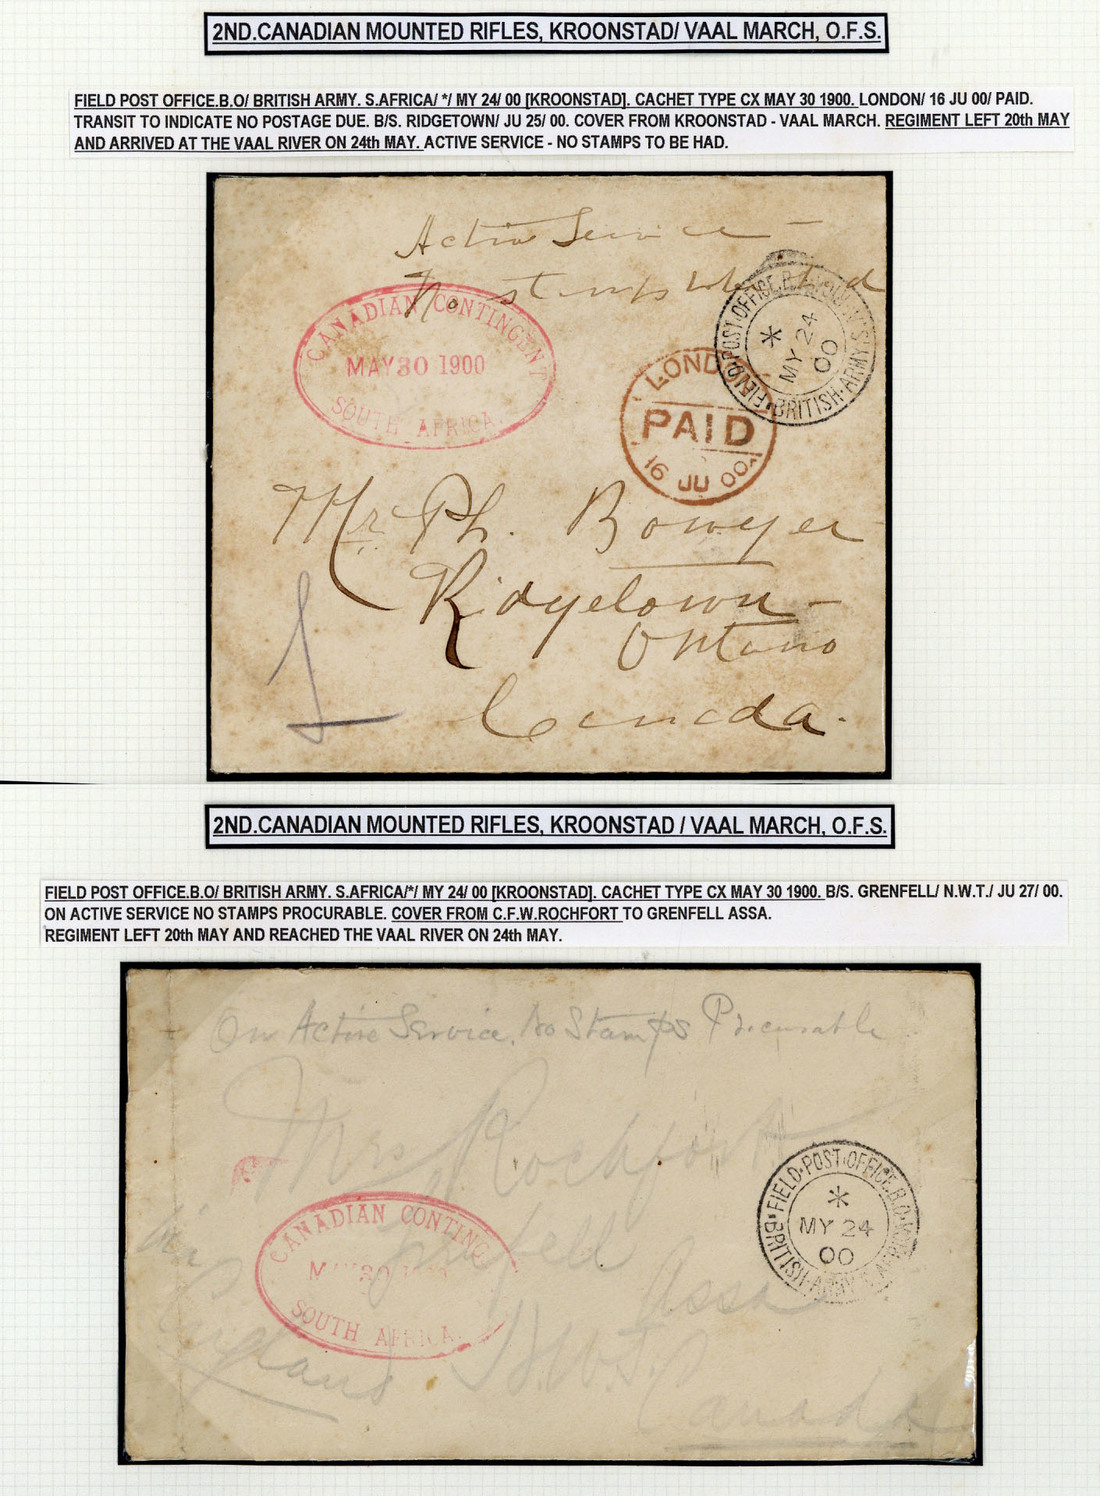 2ND.CANADIAN MOUNTED RIFLES, KROONSTAD/ VAAL MARCH, O.F.S.
FIELD POST OFFICE.B.O/ BRITISH ARMY. S.AFRICA/ */ MY 24/ 00 [KROONSTAD]. CACHET TYPE CX MAY 30 1900. LONDON/ 16 JU 00/ PAID.
TRANSIT TO INDICATE NO POSTAGE DUE. B/S. RIDGETOWN/ JU 25/ 00. COVER FROM KROONSTAD - VAAL MARCH. REGIMENT LEFT 20th MAY
AND ARRIVED AT THE VAAL RIVER ON 24th MAY. ACTIVE SERVICE - NO STAMPS TO BE HAD.
Active Service -
No stamps to be had
CANADIAN CONTINGENT
MAY 30 1900
SOUTH AFRICA.
FIELD·POST·OFFICE.B.O
*
MY 24
00
BRITISH·ARMY·S.
LONDON
PAID
16 JU 00
Mr. Ph. Bowyer
Ridgetown -
Ontario
Canada.
2ND.CANADIAN MOUNTED RIFLES, KROONSTAD / VAAL MARCH, O.F.S.
FIELD POST OFFICE.B.O/ BRITISH ARMY. S.AFRICA/*/ MY 24/ 00 [KROONSTAD]. CACHET TYPE CX MAY 30 1900. B/S. GRENFELL/ N.W.T./ JU 27/ 00.
ON ACTIVE SERVICE NO STAMPS PROCURABLE. COVER FROM C.F.W.ROCHFORT TO GRENFELL ASSA.
REGIMENT LEFT 20th MAY AND REACHED THE VAAL RIVER ON 24th MAY.
On Active Service. No Stamps Procurable
Mrs Rochfort
Grenfell
Assa
N.W.T.
Canada
CANADIAN CONTING
MAY 30
SOUTH AFRICA.
FIELD·POST·OFFICE.B.O
*
MY 24
00
BRITISH·ARMY S. AFRICA